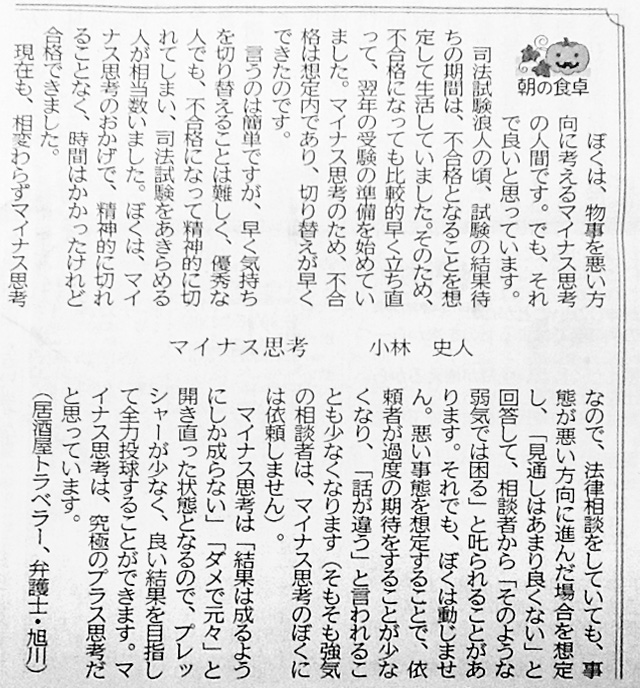 朝の食卓
マイナス思考　小林　史人
ぼくは、物事を悪い方
向に考えるマイナス思考
の人間です。でも、それ
で良いと思っています。
司法試験浪人の頃、試験の結果待
ちの期間は、不合格となることを想
定して生活していました。そのため、
不合格になっても比較的早く立ち直
って、翌年の受験の準備を始めてい
ました。マイナス思考のため、不合
格は想定内であり、切り替えが早く
できたのです。
言うのは簡単ですが、早く気持ち
を切り替えることは難しく、優秀な
人でも、不合格になって精神的に切
れてしまい、司法試験をあきらめる
人が相当数いました。ぼくは、マイ
ナス思考のおかげで、精神的に切れ
ることなく、時間はかかったけれど
合格できました。
現在も、相変わらずマイナス思考
なので、法律相談をしていても、事
態が悪い方向に進んだ場合を想定
し、「見通しはあまり良くない」と
回答して、相談者から「そのような
弱気では困る」と叱られることがあ
ります。それでも、ぼくは動じませ
ん。悪い事態を想定することで、依
頼者が過度の期待をすることが少な
くなり、「話が違う」と言われるこ
とも少なくなります（そもそも強気
の相談者は、マイナス思考のぼくに
は依頼しません）。
マイナス思考は「結果は成るよう
にしか成らない」「ダメで元々」と
開き直った状態となるので、プレッ
シャーが少なく、良い結果を目指し
て全力投球することができます。マ
イナス思考は、究極のプラス思考だ
と思っています。
（居酒屋トラベラー、弁護士・旭川）